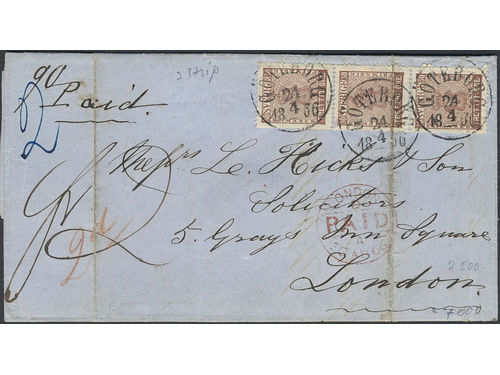 Paid.
strip
GÖTEBORG
24
4
GÖTEBORG
24
4
GÖTEBORG
24
4
Messrs Le Hicks & Son
Solicitors
5. Grays Inn Square
London.
LONDON
PAID
9d
2.500
7.000